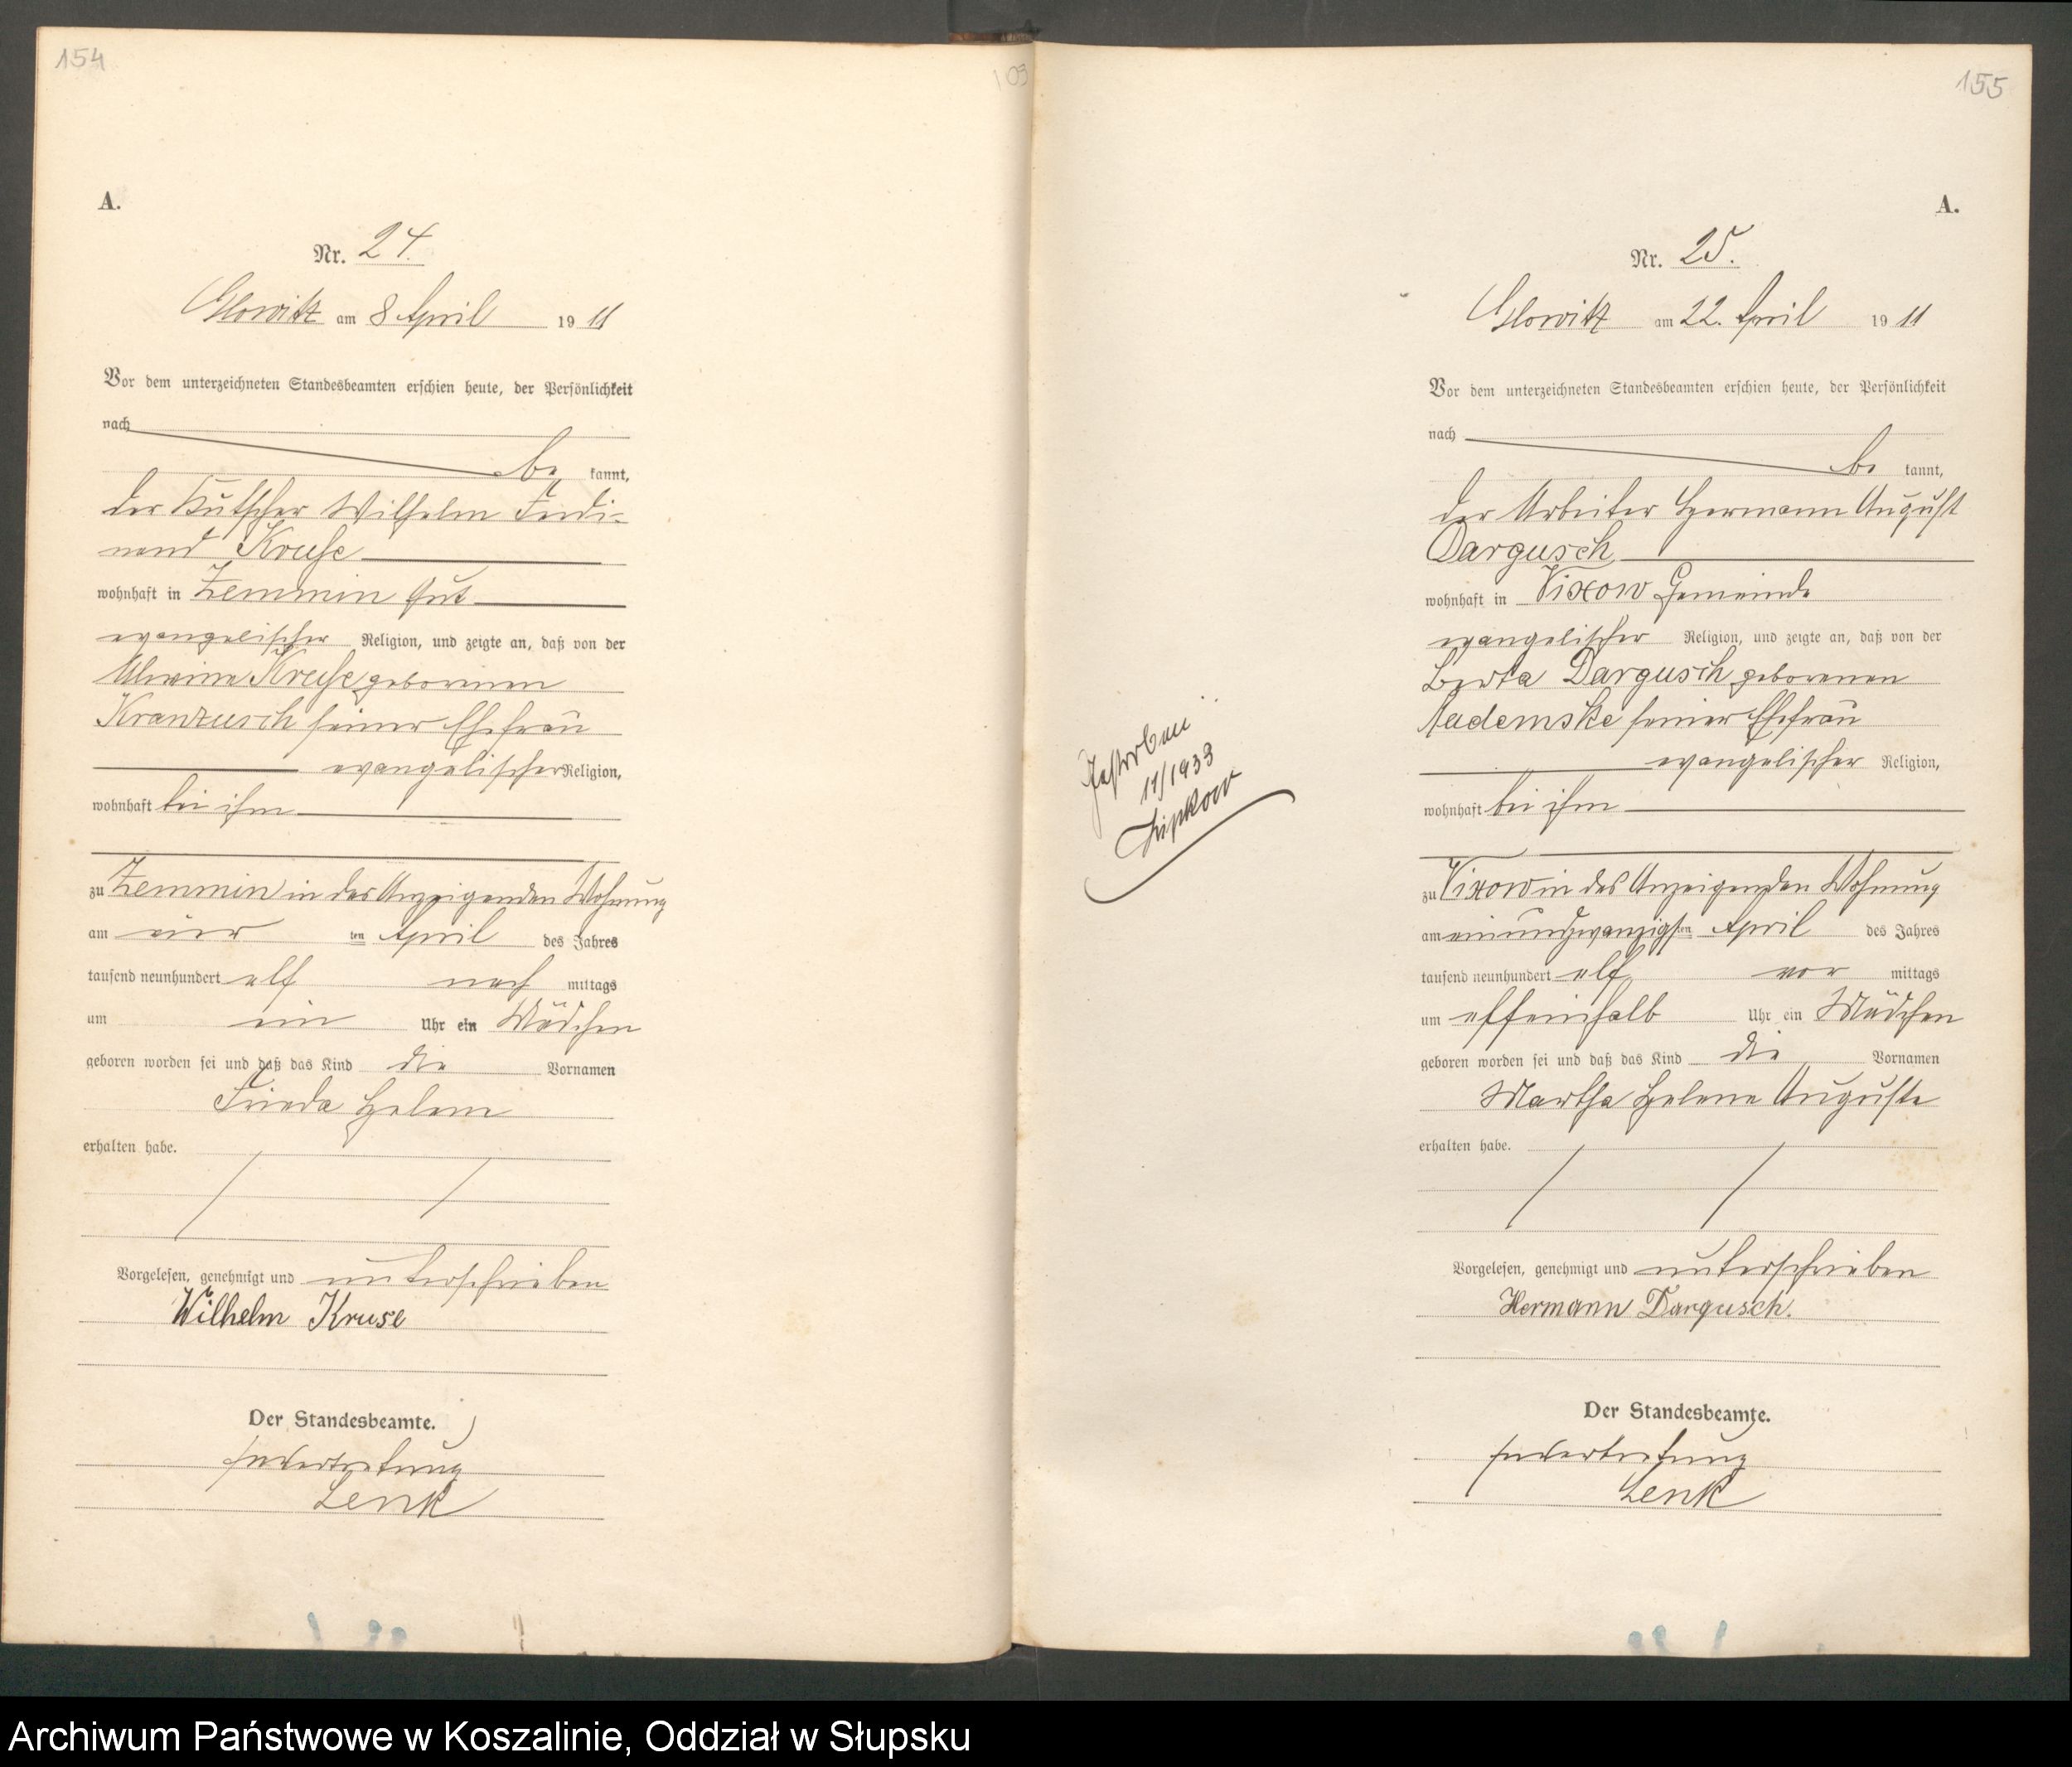 154
109
A.
Nr. 24.
Glowitz am 8 April 1911
Vor dem unterzeichneten Standesbeamten erschien heute, der Persönlichkeit
nach
be kannt,
der Kutscher Wilhelm Ferdi-
nand Kruse
wohnhaft in Zemmin Gut
evangelischer Religion, und zeigte an, daß von der
Alwine Kruse geborenen
Kranzusch seiner Ehefrau
evangelischer Religion,
wohnhaft bei ihm
zu Zemmin in des Anzeigenden Wohnung
am vier ten April des Jahres
tausend neunhundert elf nach mittags
um ein Uhr ein Mädchen
geboren worden sei und daß das Kind die Vornamen
Frieda Helene
erhalten habe.
Vorgelesen, genehmigt und unterschrieben
Wilhelm Kruse
Der Standesbeamte.
In Vertretung
Lenk
155
A.
Nr. 25.
Glowitz am 22. April 1911
Vor dem unterzeichneten Standesbeamten erschien heute, der Persönlichkeit
nach
be kannt,
der Arbeiter Hermann August
Dargusch
wohnhaft in Vixow Gemeinde
evangelischer Religion, und zeigte an, daß von der
Berta Dargusch geborenen
seiner Ehefrau
evangelischer Religion,
wohnhaft bei ihm
zu Vixow in des Anzeigenden Wohnung
am einundzwanzigsten April des Jahres
tausend neunhundert elf vor mittags
um elfeinhalb Uhr ein Mädchen
geboren worden sei und daß das Kind die Vornamen
Martha Helene Auguste
erhalten habe.
Vorgelesen, genehmigt und unterschrieben
Hermann Dargusch.
Der Standesbeamte.
In Vertretung
Lenk
Gestorben
11/1933
Archiwum Państwowe w Koszalinie, Oddział w Słupsku